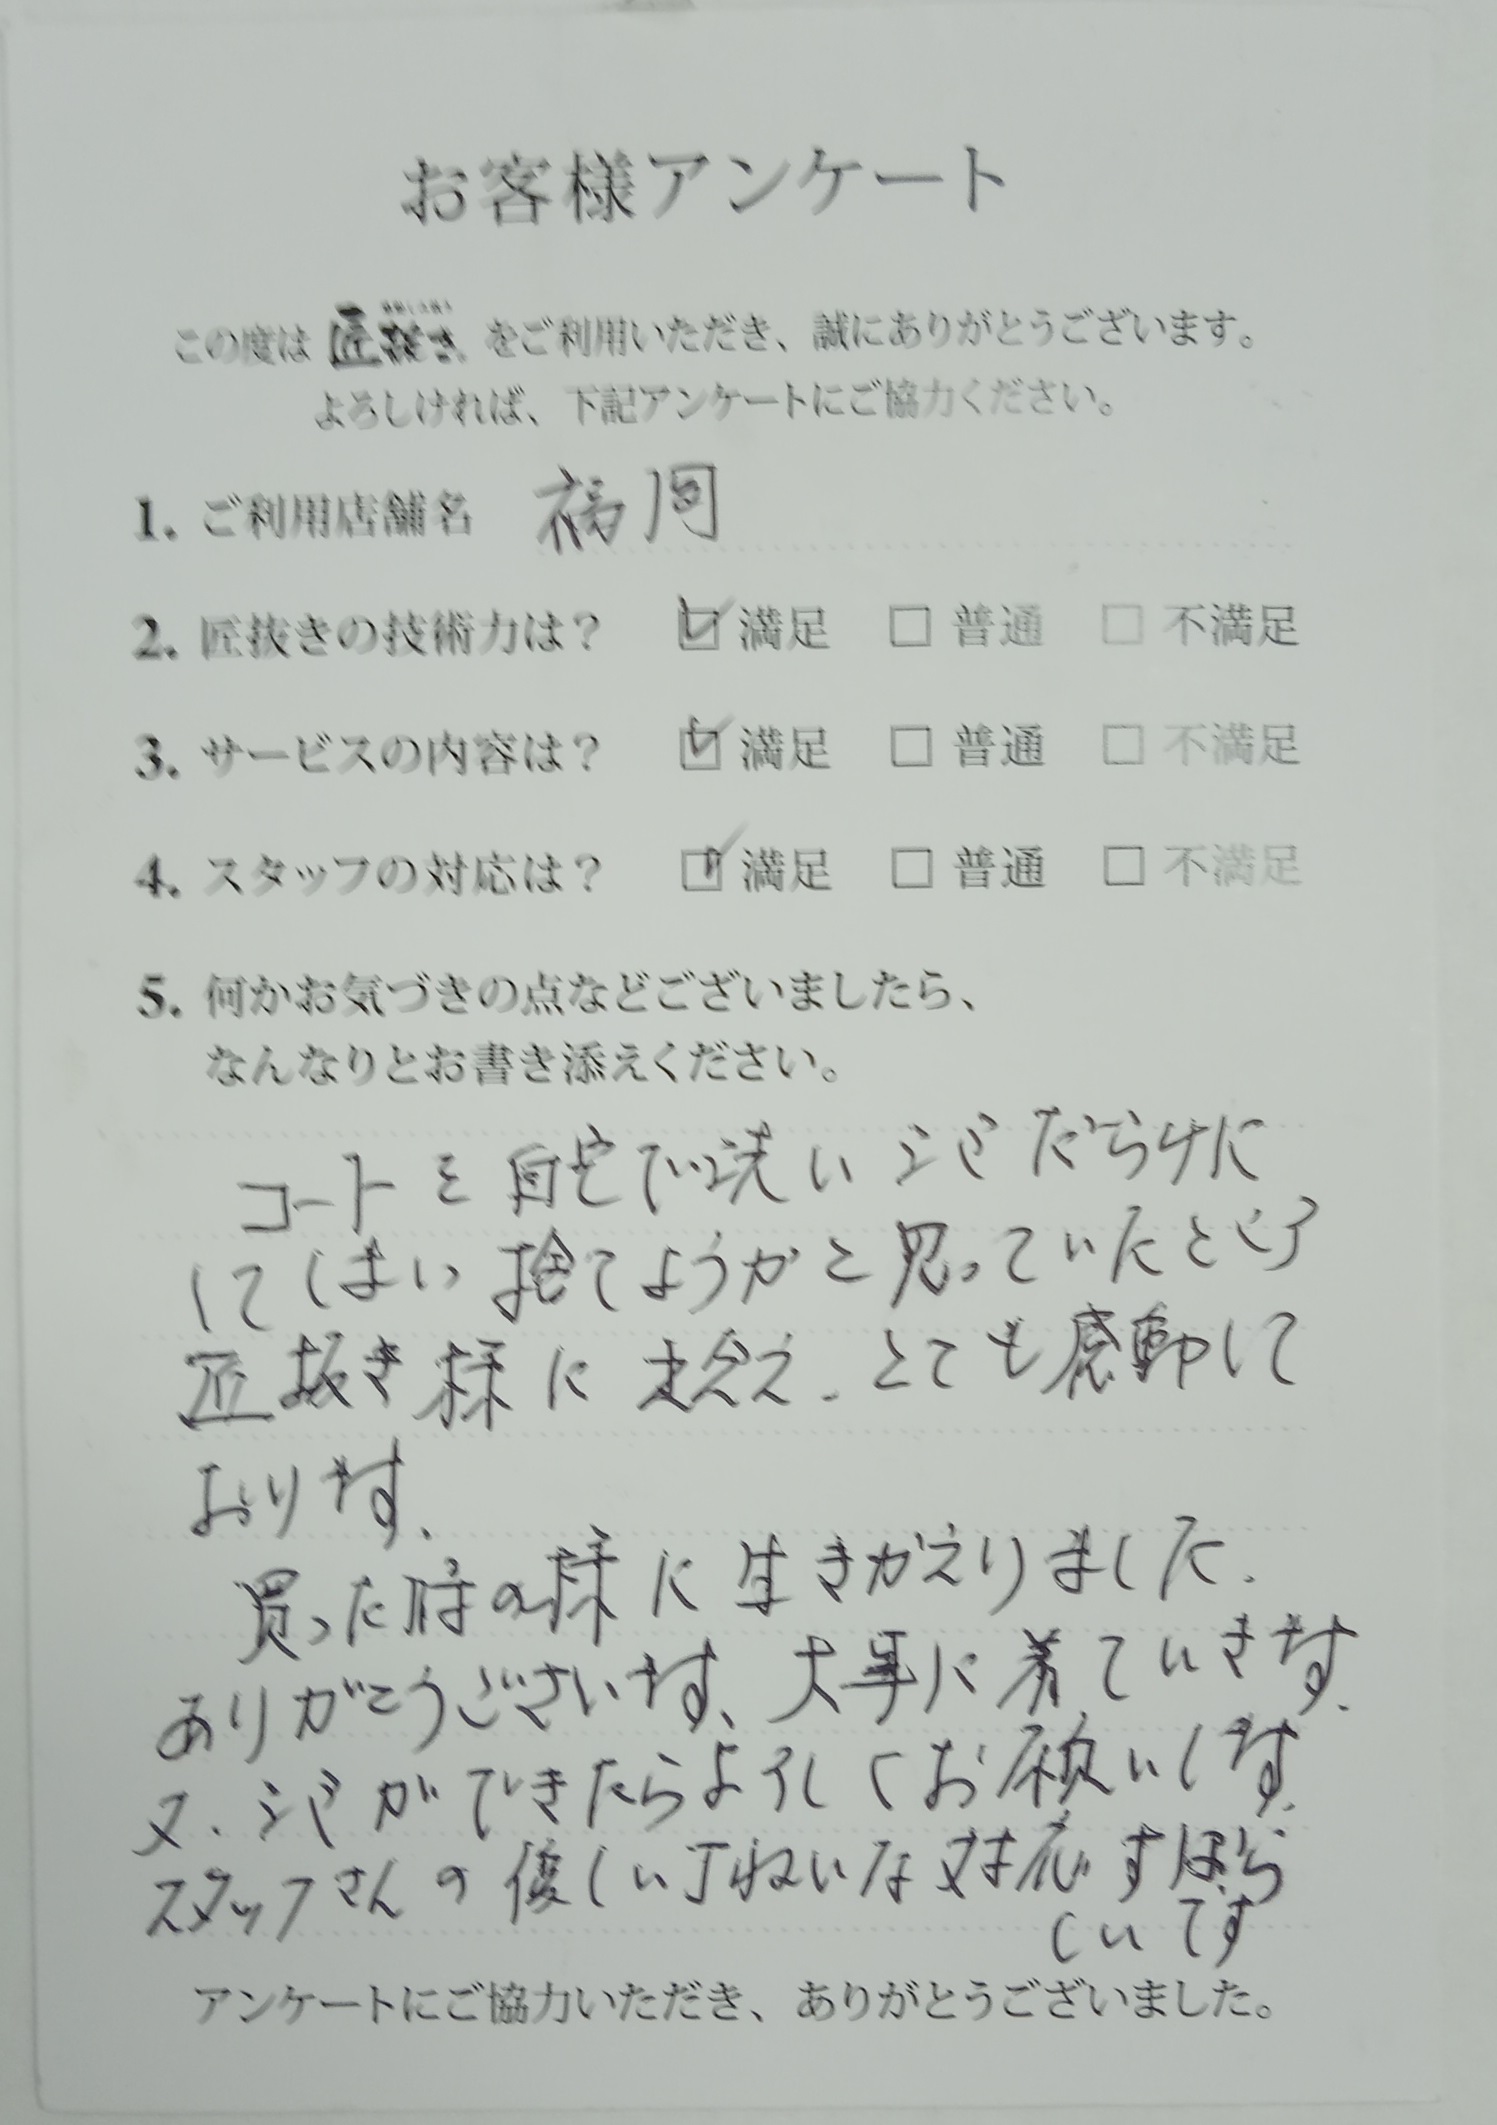 お客様アンケート
この度は 匠抜き をご利用いただき、誠にありがとうございます。
よろしければ、下記アンケートにご協力ください。
1. ご利用店舗名 福岡
2. 匠抜きの技術力は？ ☑ 満足 □ 普通 □ 不満足
3. サービスの内容は？ ☑ 満足 □ 普通 □ 不満足
4. スタッフの対応は？ ☑ 満足 □ 普通 □ 不満足
5. 何かお気づきの点などございましたら、
なんなりとお書き添えください。
コートを自宅で洗いシワだらけに
してしまい捨てようかと思っていたところ
匠抜き様に出会え、とても感動して
おります。
買った時の様に生きかえりました。
ありがとうございます、大事に着ていきます。
又、シワができたらよろしくお願いします。
スタッフさんの優しい丁ねいな対応すばら
しいです
アンケートにご協力いただき、ありがとうございました。